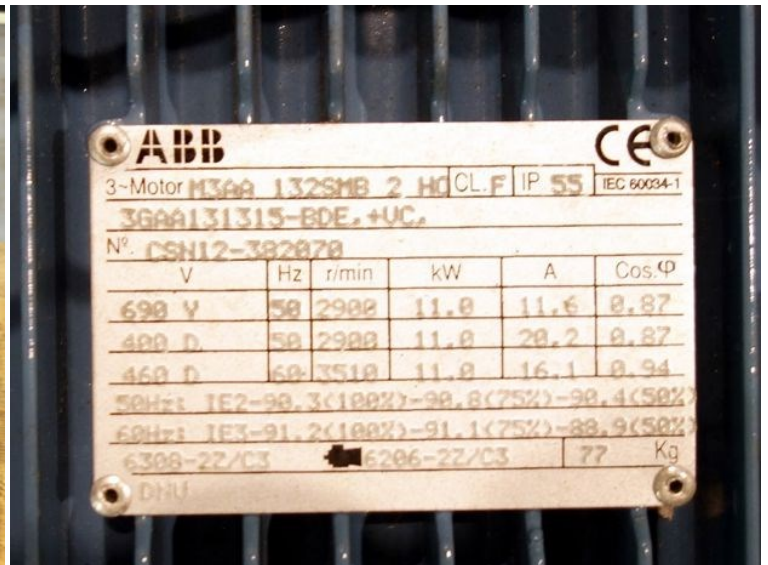 ABB CE
3~Motor M3AA 132SMB 2 HO CL.F IP 55 IEC 60034-1
3GAA131315-BDE,+VC,
Nº. CSN12-382070
V Hz r/min kW A Cos.φ
690 Y 50 2900 11.0 11.6 0.87
400 D 50 2900 11.0 20.2 0.87
460 D 60 3510 11.0 16.1 0.94
50Hz: IE2-90.3(100%)-90.8(75%)-90.4(50%)
60Hz: IE3-91.2(100%)-91.1(75%)-88.9(50%)
6308-2Z/C3 6206-2Z/C3 77 Kg
DNV